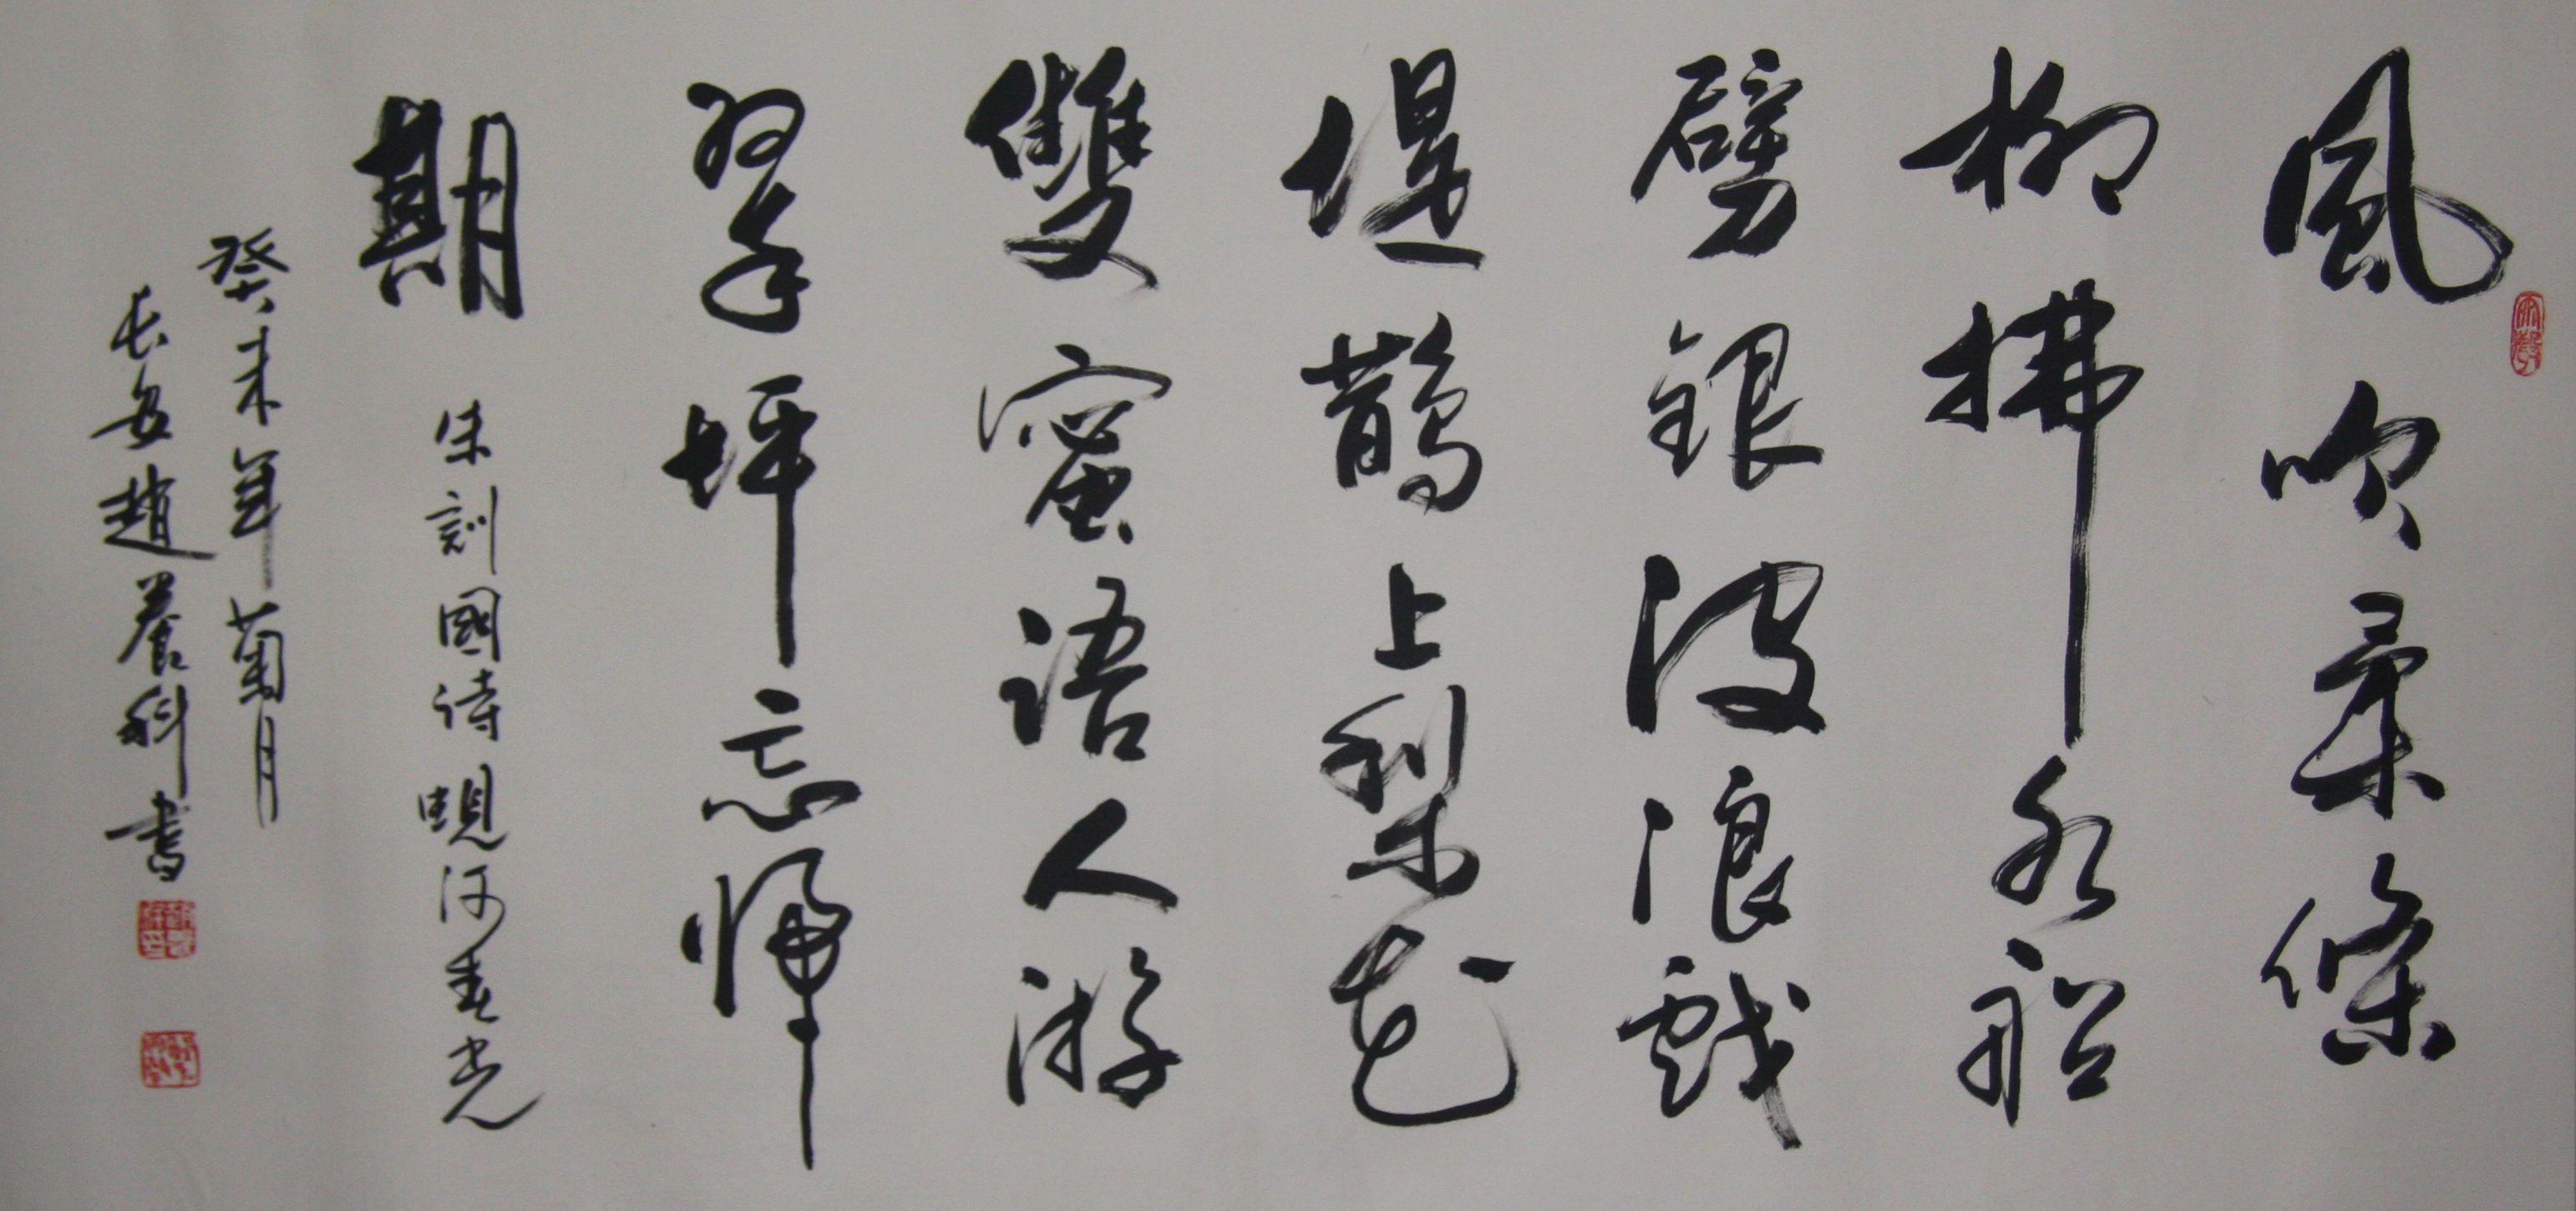 風吹柔條
柳拂水船
劈銀波浪戲
堤鵲上梨花
雙蜜語人游
翠坪忘歸
期
朱訓國詩蜆河春光
癸未年菊月
長安趙養科書